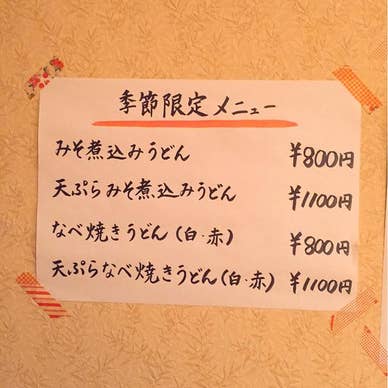 季節限定メニュー
みそ煮込みうどん ¥800円
天ぷらみそ煮込みうどん ¥1100円
なべ焼きうどん(白・赤) ¥800円
天ぷらなべ焼きうどん(白・赤) ¥1100円